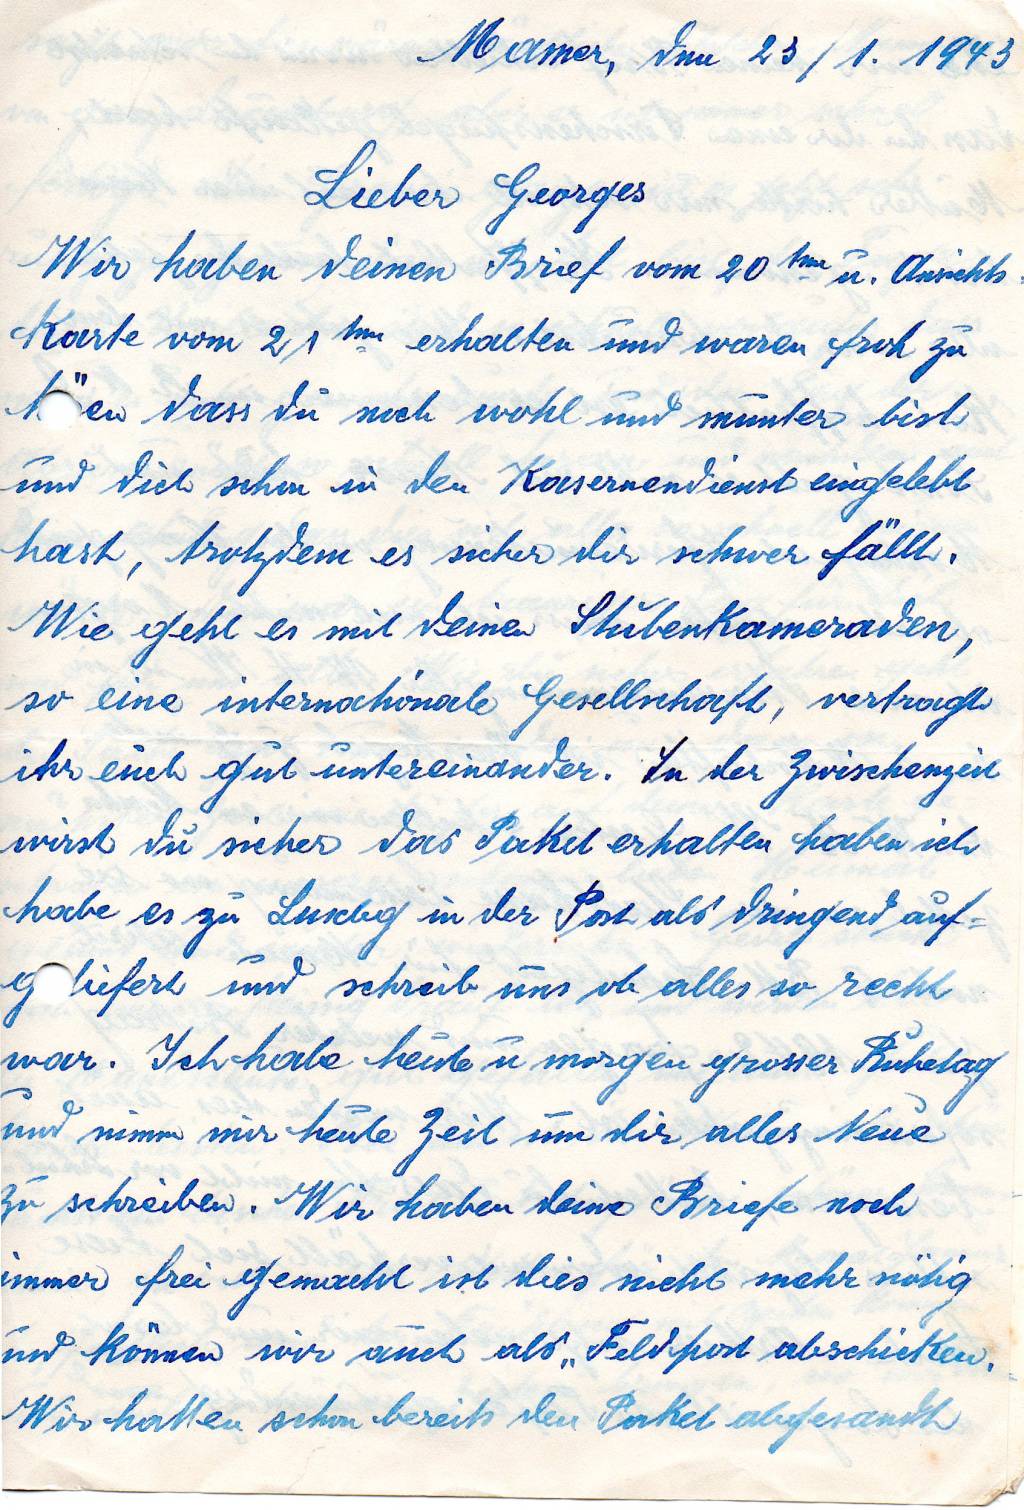 Mamer, den 23/1. 1943
Lieber Georges
Wir haben deinen Brief vom 20ten u. Ansichts-
Karte vom 21ten erhalten und waren froh zu
hören dass du noch wohl und munter bist
und dich schon in den Kasernendienst eingelebt
hast, trotzdem es sicher dir schwer fällt.
Wie geht es mit deinen Stubenkameraden,
so eine internationale Gesellschaft, vertragt
ihr euch gut untereinander. In der Zwischenzeit
wirst du sicher das Paket erhalten haben ich
habe es zu Luxbg in der Post als dringend auf=
geliefert und schreib uns ob alles so recht
war. Ich habe heute u morgen grosser Ruhetag
und nimm mir heute Zeit um dir alles Neue
zu schreiben. Wir haben deine Briefe noch
immer frei gemacht ist dies nicht mehr nötig
und können wir auch als „Feldpost abschicken.
Wir hatten schon bereits den Paket abgesandt